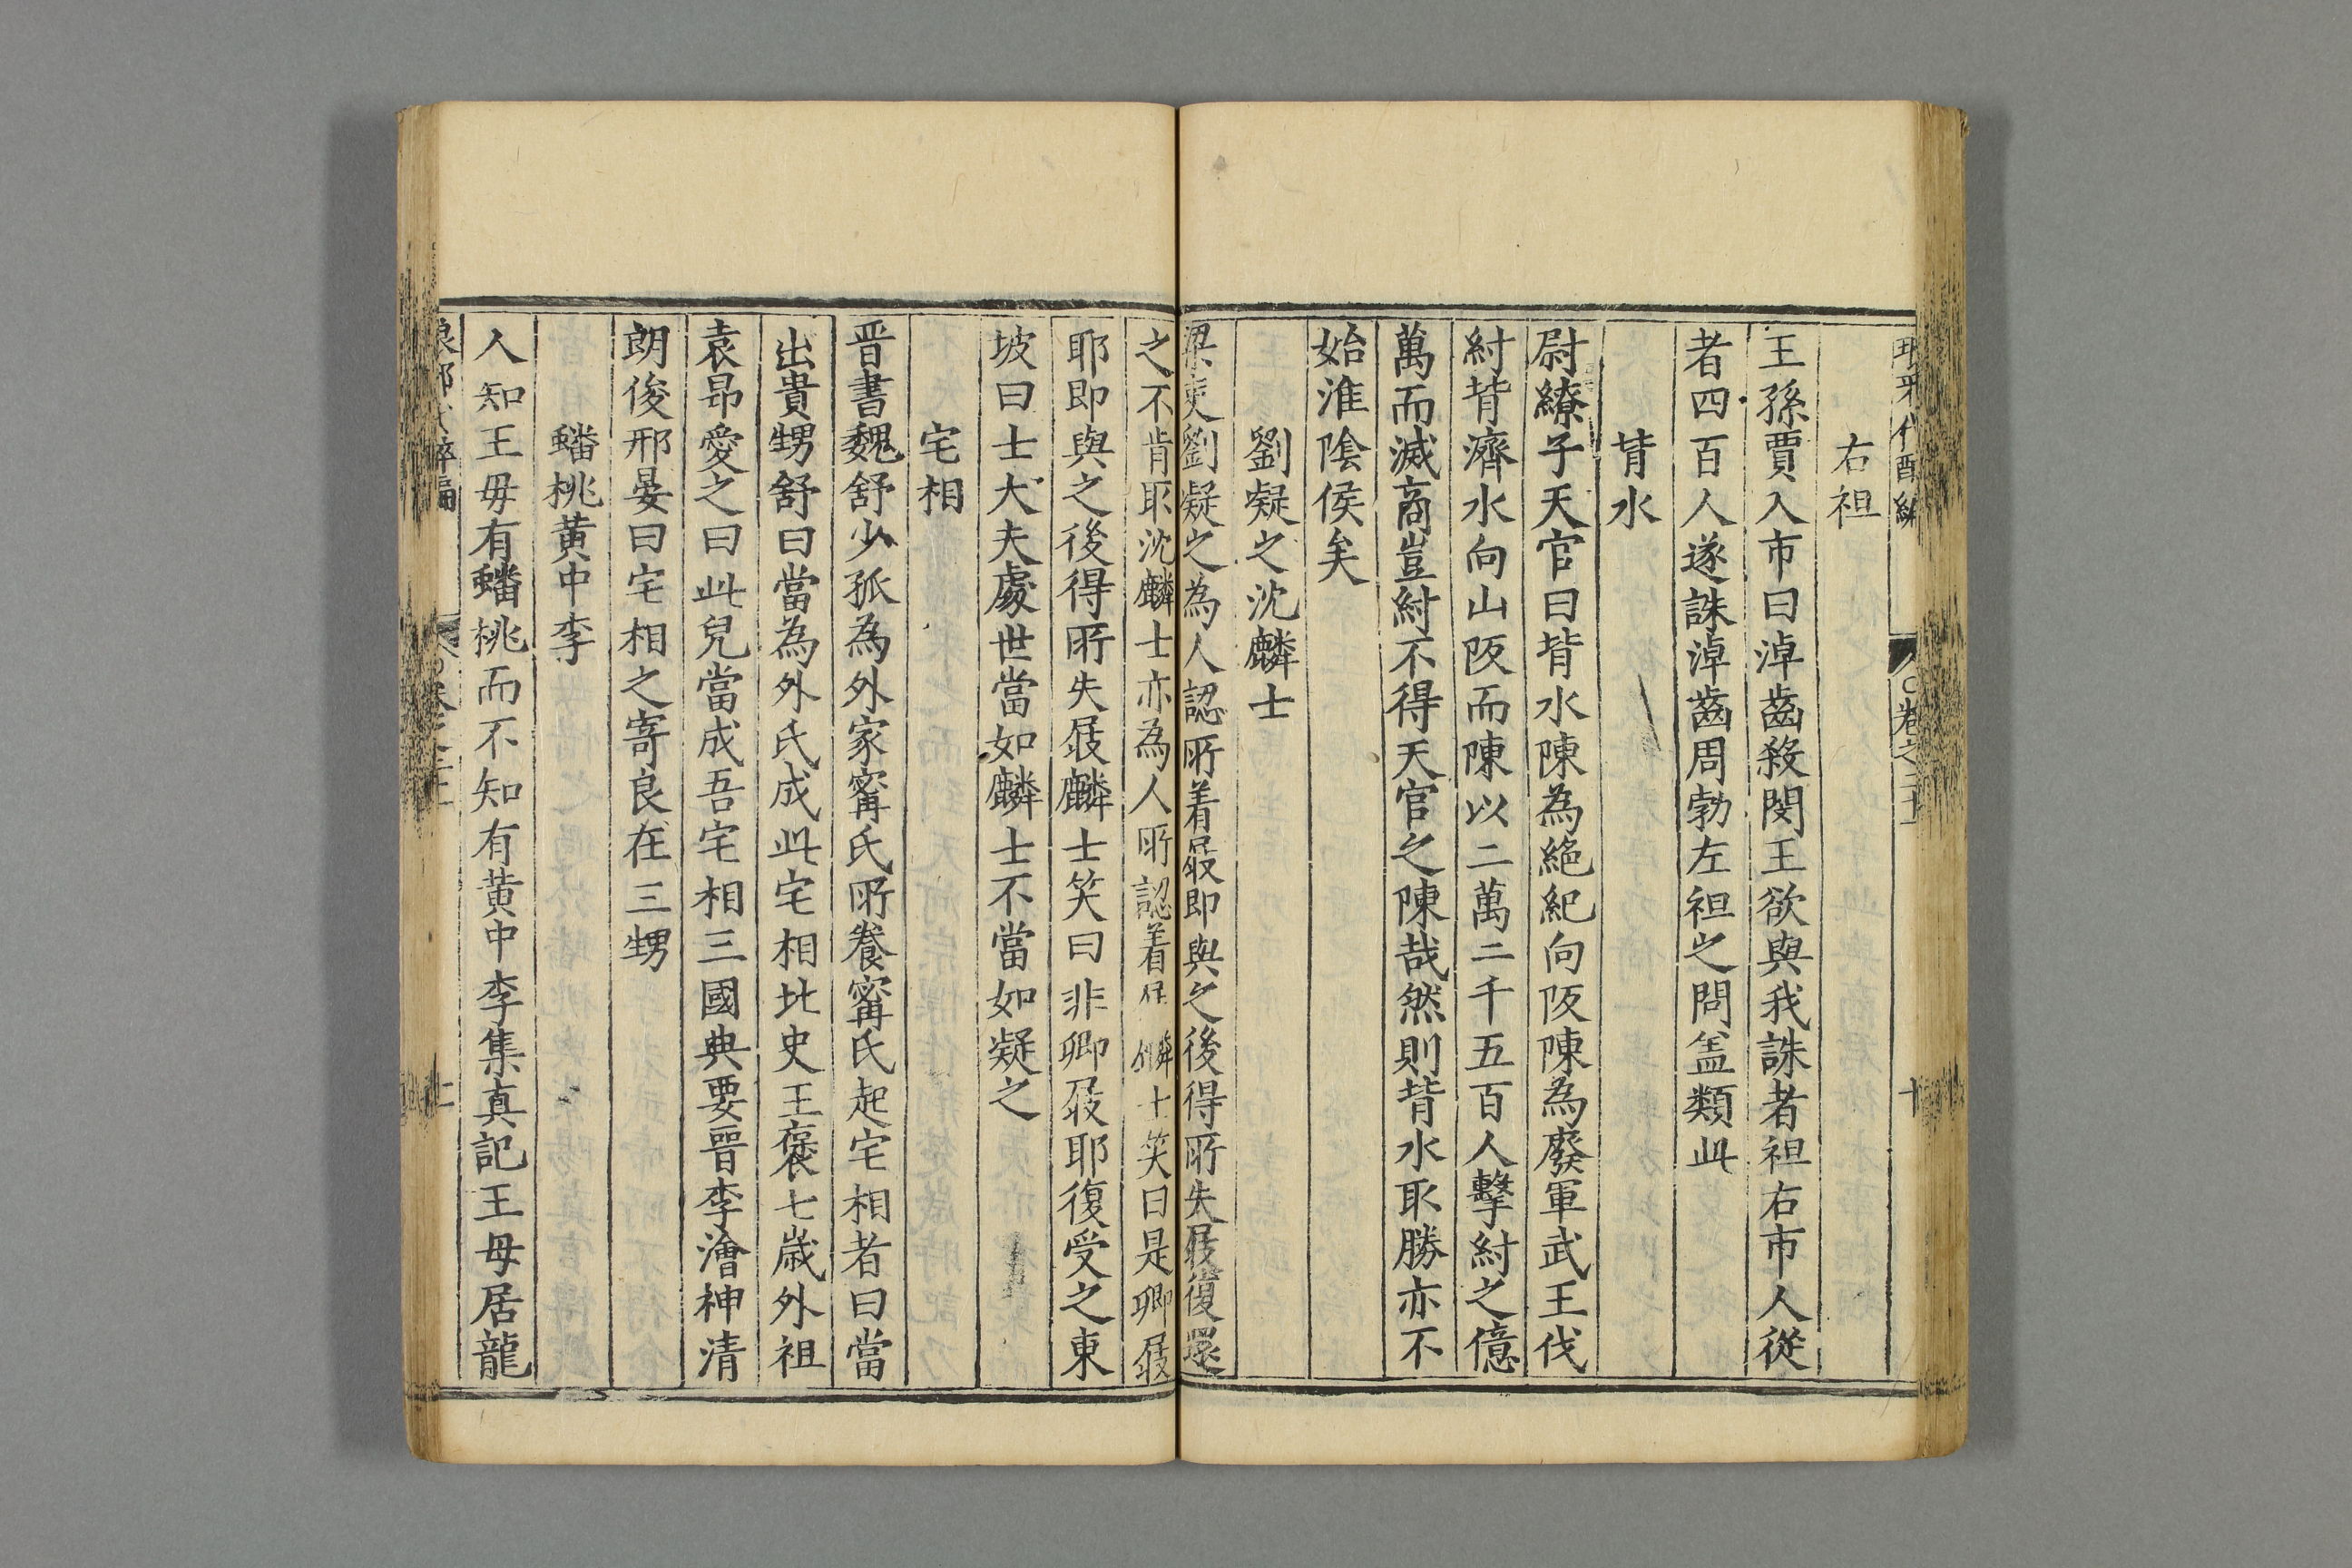 右袒
王孫賈入市曰淖齒殺閔王欲與我誅者袒右市人從
者四百人遂誅淖齒周勃左袒之問盖類此
背水
尉繚子天官曰背水陳為絶紀向阪陳為廢軍武王伐
紂背濟水向山阪而陳以二萬二千五百人擊紂之億
萬而滅商豈紂不得天官之陳哉然則背水取勝亦不
始淮陰侯矣
劉凝之沈麟士
梁吏劉凝之為人認所着屐即與之後得所失屐復還
之不肯取沈麟士亦為人所認着屐麟士笑曰是卿屐
耶即與之後得所失屐麟士笑曰非卿屐耶復受之東
坡曰士大夫處世當如麟士不當如凝之
宅相
晋書魏舒少孤為外家甯氏所養甯氏起宅相者曰當
出貴甥舒曰當為外氏成此宅相北史王褒七歲外祖
袁昻愛之曰此兒當成吾宅相三國典要晉李澮神清
朗俊邢晏曰宅相之寄良在三甥
蟠桃黄中李
人知王母有蟠桃而不知有黄中李集真記王母居龍